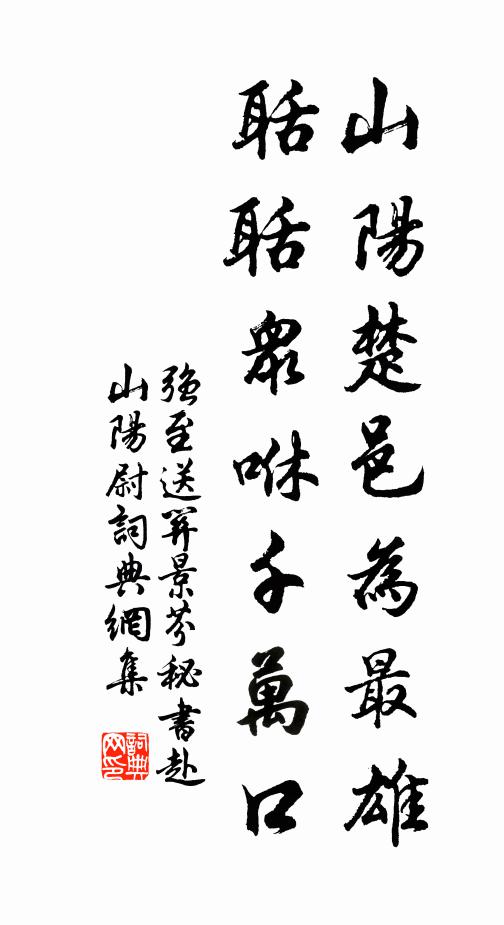 山陽楚邑為最雄
聒聒眾咻千萬口
強至送羿景芬秘書赴
山陽尉詞典網集
詞典網印